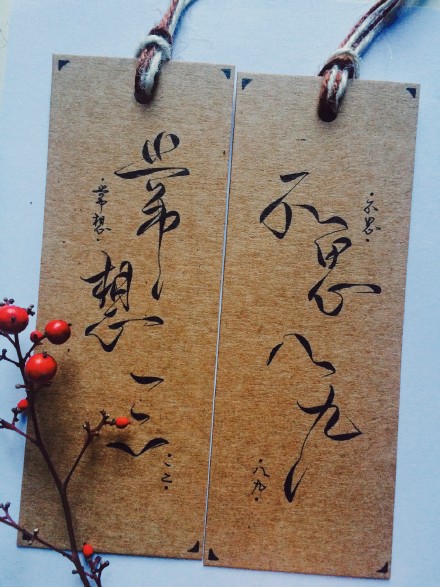 ·不思·
不思八九
·八九·
常想一二
·常想·